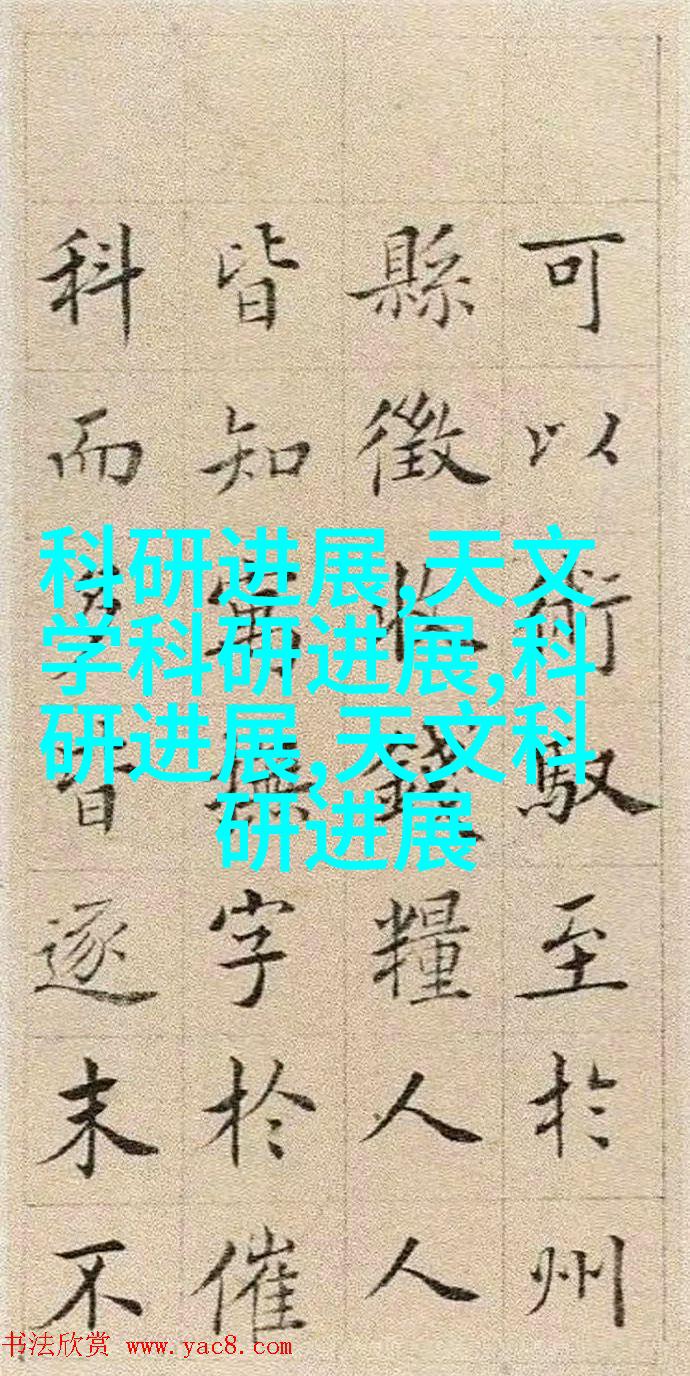 可以術馭至於州
縣徵收錢糧人人
皆知寓撫字於催
科而皆逐末不
科研进展,天文
学科研进展,科
研进展,天文科
研进展
书法欣赏 www.yac8.com